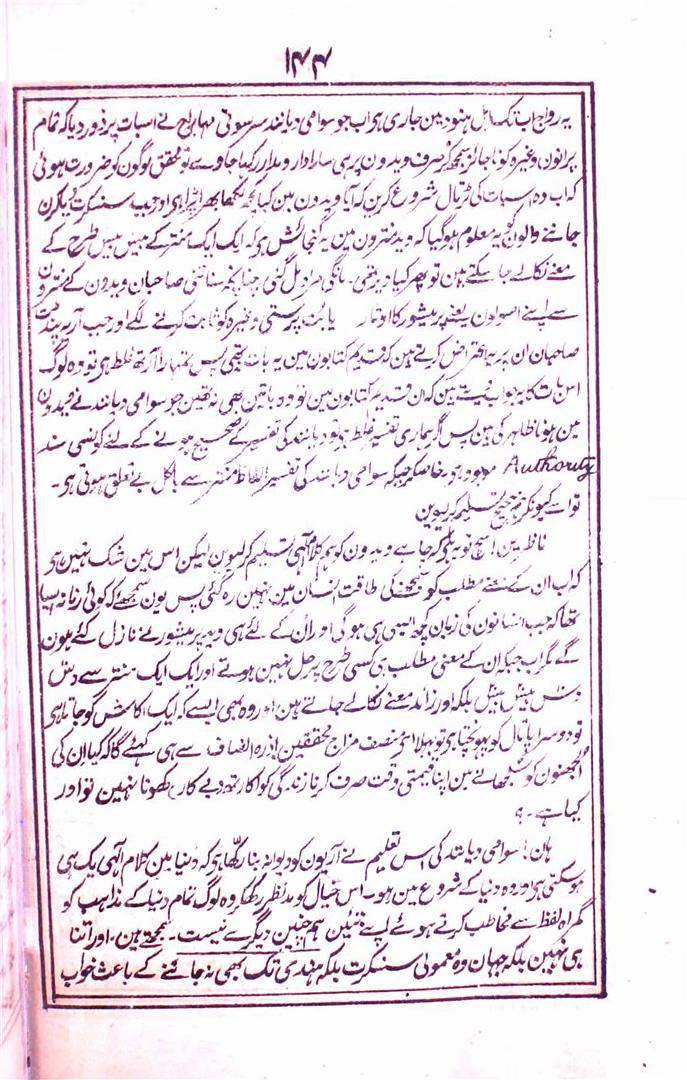 ۱۴۴
یہ رواج اب تک اہل ہنود مین جاری ہو اب جو سوامی دیانند سرسوتی مہاراج نے اسبات پر زور دیا کہ تمام
پرانون وغیرہ کو ناجائز سمجھ کر صرف ویدون پر ہی سارا دارومدار رکھا جاوے تو محقق لوگون کو ضرورت ہوئی
کہ اب وہ اسبات کی پڑتال شروع کرین کہ آیا ویدون مین کیا کچھ لکھا بھرا پڑا ہی اور جب سنسکرت
جاننے والون کو یہ معلوم ہو گیا کہ وید منترون مین یہ گنجائش ہی کہ ایک ایک منتر کے بیس بیس طرح کے
معنے نکالے جا سکتے ہین تو پھر کیا دیر تھی۔ مانگی مراد مل گئی چنانچہ سناتنی صاحبان ویدون کے منترون
سے اپنے اصولون یعنے پرمیشور کا اوتار یا بت پرستی وغیرہ کو ثابت کرنے لگے اور جب آریہ پنڈت
صاحبان ان پر یہ اعتراض کرتے ہین کہ قدیم کتابون مین یہ بات نہ تھی پس تمہارا ارتھ غلط ہی تو وہ لوگ
اس بات کا یہ جواب دیتے ہین کہ ان قدیم کتابون مین تو وہ باتین بھی نہ تھین جو سوامی دیانند نے ویدون
مین ہونا ظاہر کی ہین پس اگر ہماری تفسیر غلط ہو تو دیانند کی تفسیر کے صحیح ہونے کے لئے کونسی سند
Authority موجود ہو۔ خاصکر جبکہ سوامی دیانند کی تفسیر الفاظ منتر سے بالکل بے تعلق ہوتی ہی۔
تو اسے کیونکر صحیح تسلیم کر لیوین
ناظرین! سچ تو یہ ہی کہ چاہے ویدون کو ہم کلام الٰہی تسلیم کر لیوین لیکن اس مین شک نہین ہی
کہ اب ان کے معنے مطلب کو سمجھنے کی طاقت انسان مین نہین رہ گئی پس یون سمجھئے کہ کوئی زمانہ ایسا
تھا کہ جب انسانون کی زبان کچھ ایسی ہی ہو گی اور ان کے لئے ہی وید پرمیشور نے نازل کئے ہون
گے مگر اب جبکہ ان کے معنی مطلب ہی کسی طرح پر حل نہین ہوتے اور ایک ایک منتر سے دس
دس بیس بیس بلکہ اور زائد معنے نکالے جاتے ہین اور وہ بھی ایسے کہ ایک اکاش کو جاتا ہی
تو دوسرا پاتال کو پہونچتا ہی تو بھلا ای منصف مزاج محققین! ذرہ انصاف سے ہی کہئے گا کہ کیا ان کی
الجھنون کو سلجھانے مین اپنا قیمتی وقت صرف کرنا زندگی کو اکارتھ (بے کار) کھونا نہین تو اور
کیا ہے۔؟
ہان! سوامی دیانند کی اس تعلیم نے آریون کو دیوانہ بنا رکھا ہی کہ دنیا مین کلام الٰہی ایک ہی
ہو سکتی ہی اور وہ دنیا کے شروع مین ہو۔ اس خیال کو مدنظر رکھکر وہ لوگ تمام دنیا کے مذاہب کو
گمراہ لفظ سے مخاطب کرتے ہوئے اپنے تئین ہمچنین دیگرے نیست۔ سمجھتے ہین، اور اتنا
ہی نہین بلکہ جہان وہ معمولی سنسکرت بلکہ ہندی تک بھی نہ جاننے کے باعث خواب